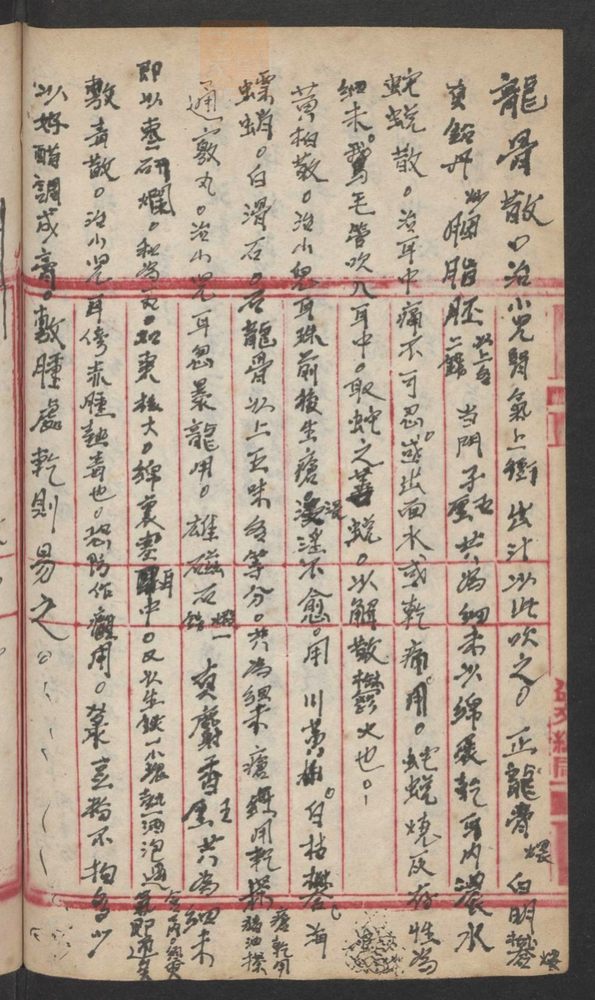 龍骨散。治小兒腎氣上衝出汁以此吹之。正龍骨煅 白明礬煅
黃鉛丹炒 胭脂胚以上各二錢 当門子五厘 共為細末以綿裹乾耳內濃水
蛇蛻散。治耳中痛不可忍或出血水或乾痛用。蛇蛻燒灰存性為
細末。鵞毛管吹入耳中。取蛇之善蛻。以解散欝火也。
黃柏散。治小兒耳珠前後生瘡浸淫不愈。用川黃柏。白枯礬。海
螵蛸。白滑石。龍骨以上五味各等分。共為細末 瘡濕用乾摻 瘡乾用豬油搽
通竅丸。治小兒耳忽暴聾用。雄磁石煅一錢 真麝香五厘 共為細末
即以葱研爛。和為丸。如棗核大。綿裹塞耳中。又以生鉄一小塊熱酒泡過
敷毒散。治小兒耳傍赤腫熱毒也。恐防作癰用。菉豆粉不拘多少
以好醋調成膏。敷腫處乾則易之。